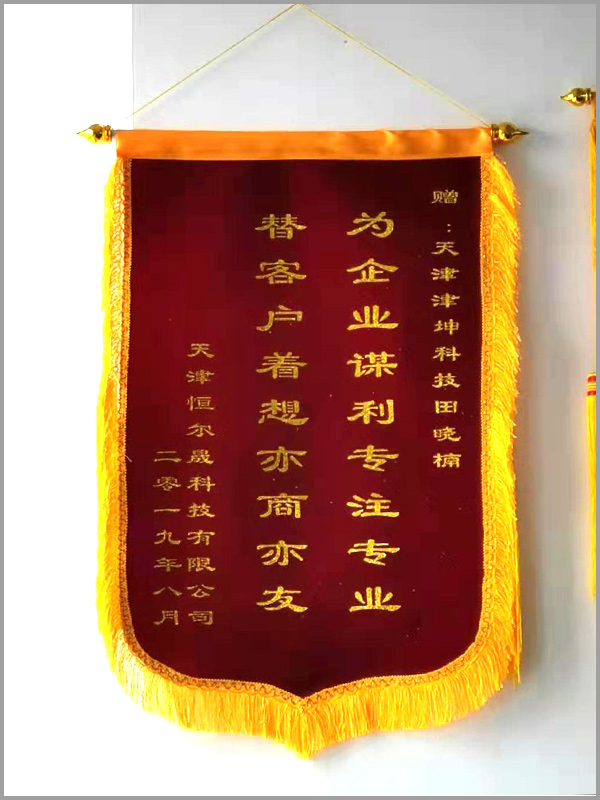 赠：天津津坤科技田晓楠
为企业谋利专注专业
替客户着想亦商亦友
天津恒尔晟科技有限公司
二零一九年八月